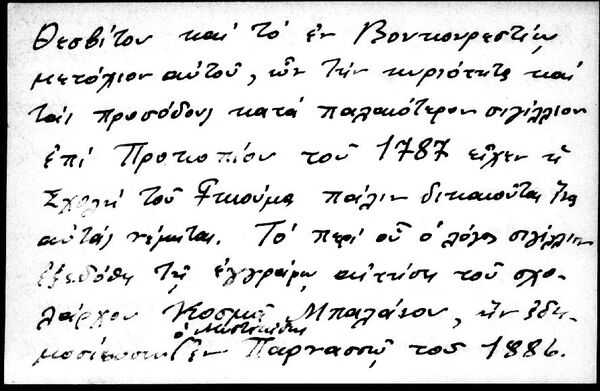 Θεσβίτου καί τό ἐν Βουκουρεστίῳ
μετόχιον αὐτοῦ, ὧν τήν κυριότητα καί
τάς προσόδους κατά παλαιότερον σιγίλλιον
ἐπί Προκοπίου τοῦ 1787 εἶχεν ἡ
Σχολή τοῦ Γκιούμα πάλιν δικαιοῦται ἵνα
αὐτάς νέμηται. Τό περί οὗ ὁ λόγος σιγίλλιον
ἐξεδόθη τῇ ἐγγράφῳ αἰτήσει τοῦ σχο-
λάρχου Κοσμᾶ Μπαλάνου, ἥν ἐδη-
μοσίευσεν ὁ Μυστακίδης ἐν Παρνασσῷ τοῦ 1886.